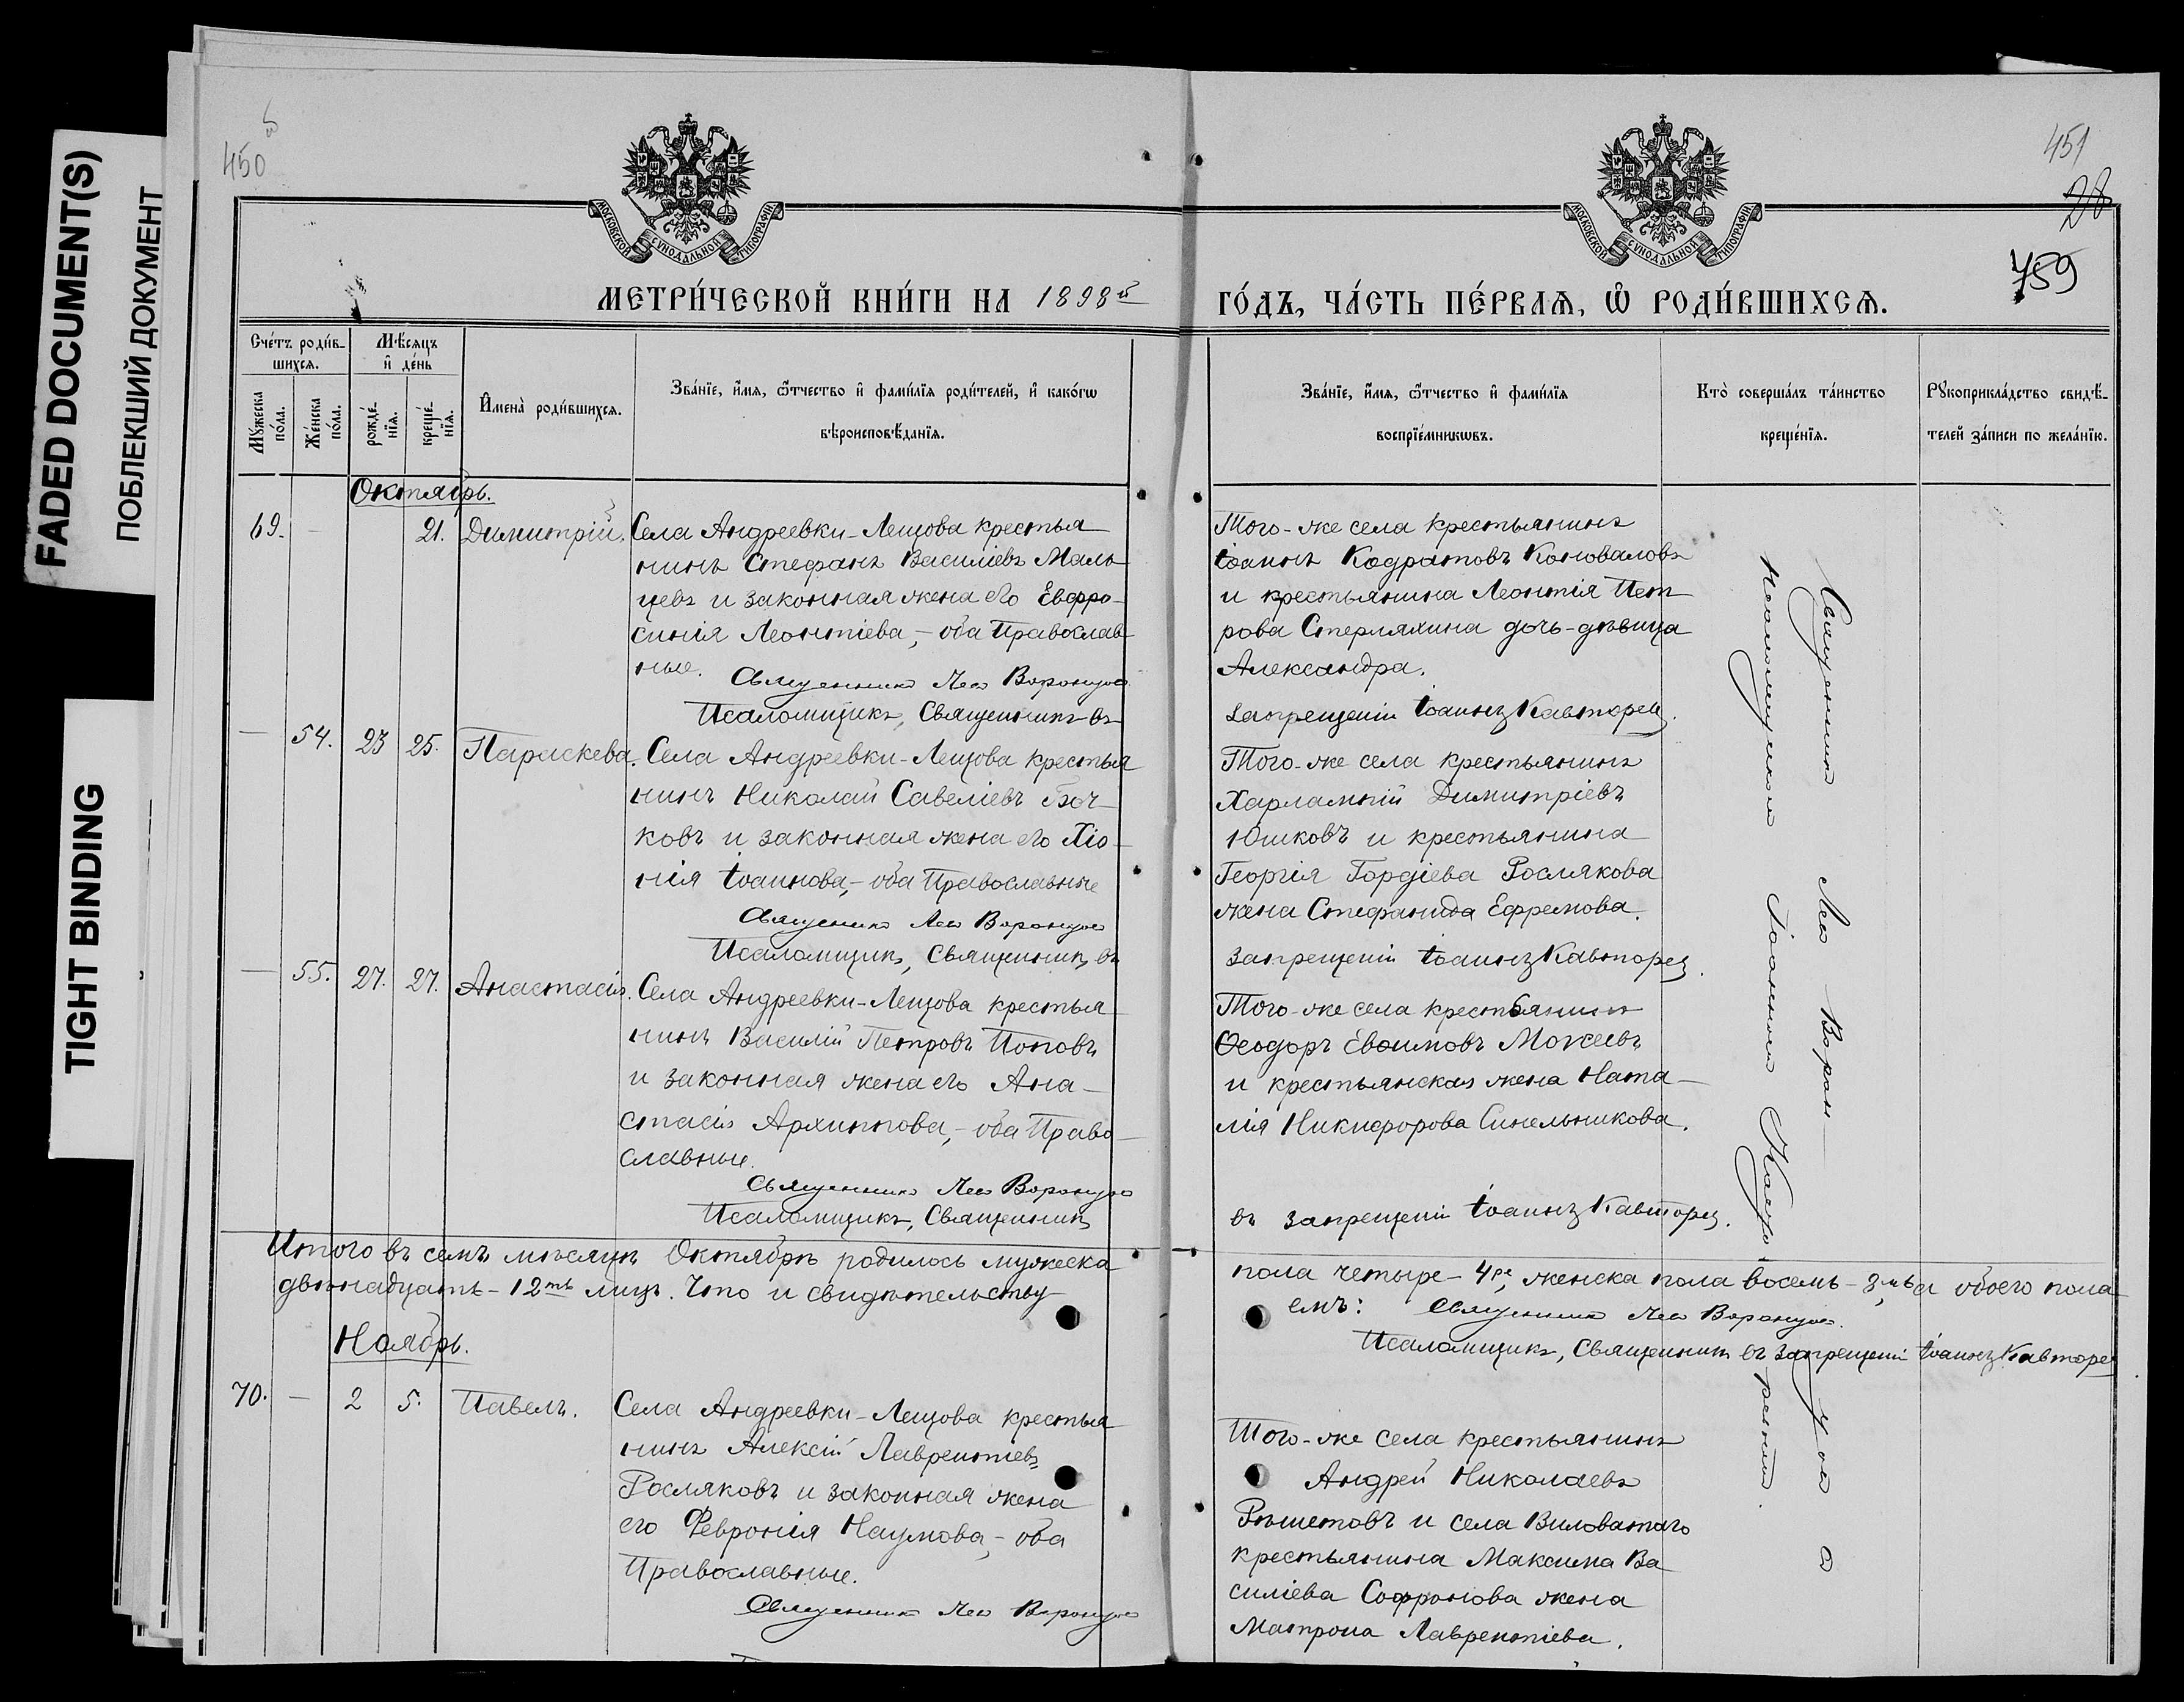 FADED DOCUMENT(S)
ПОБЛЕКШИЙ ДОКУМЕНТ
TIGHT BINDING
450
451
28
759
МОСКОВСКОЙ СУНОДАЛЬНОЙ ТИПОГРАФІИ
МОСКОВСКОЙ СУНОДАЛЬНОЙ ТИПОГРАФІИ
МЕТРИ́ЧЕСКОЙ КНИ́ГИ НА 1898й
ГО́ДЪ, ЧА́СТЬ ПЕ́РВАѦ, Ѡ РОДИ́ВШИХСѦ.
Сче́тъ роди́в-
шихсѧ.
Мꙋ́жеска по́ла.
Же́нска по́ла.
Мѣ́сѧцъ
и҆ де́нь
рожде́-
нїѧ.
креще́-
нїѧ.
И҆мена̀ роди́вшихсѧ.
Зва́нїе, и҆́мѧ, ѻ҆́тчество и҆ фами́лїѧ роди́телей, и҆ како́гѡ
вѣроисповѣ́данїѧ.
Зва́нїе, и҆́мѧ, ѻ҆́тчество и҆ фами́лїѧ
воспрїе́мникѡвъ.
Кто̀ соверша́лъ та́инство
креще́нїѧ.
Рꙋкоприкла́дство свидѣ́-
телей за́писи по жела́нїю.
Октябрь.
69. — 21. Димитрій. Села Андреевки-Лещова крестья
нинъ Стефанъ Василіевъ Маль
цевъ и законная жена его Евфро-
синія Леонтіева,- оба Православ
ные.
Священникъ Лев Воронцов
Псаломщикъ, Священникъ въ
Того-же села крестьянинъ
Іоаннъ Кодратовъ Коноваловъ
и крестьянина Леонтія Пет
рова Стерляхина дочь-дѣвица
Александра.
запрещеніи Іоаннъ Кавторец.
— 54. 23 25. Параскева. Села Андреевки-Лещова крестья
нинъ Николай Савеліевъ Боч-
ковъ и законная жена его Хіо-
нія Іоаннова,- оба Православные
Священникъ Лев Воронцов
Псаломщикъ, Священникъ въ
Того-же села крестьянинъ
Харлампій Димитріевъ
Юшковъ и крестьянина
Георгія Гордіева Рослякова
жена Стефанида Ефремова.
запрещеніи Іоаннъ Кавторец.
— 55. 27. 27. Анастасія. Села Андреевки-Лещова крестья
нинъ Василій Петровъ Поповъ
и законная жена его Ана-
стасія Архиппова,- оба Право-
славные.
Священникъ Лев Воронцов
Псаломщикъ, Священникъ
Того-же села крестьянинъ
Ѳеодоръ Евѳимовъ Мокеевъ
и крестьянская жена Ната-
лія Никифорова Синельникова.
въ запрещеніи Іоаннъ Кавторец.
Священник Лев Воронцов
Псаломщиком Іоанном
Итого въ семъ мѣсяцѣ Октябрѣ родилось мужеска
пола четыре-4ре, женска пола восемь-8мь, а обоего пола
двѣнадцать-12ть лицъ. Что и свидѣтельству
емъ: Священникъ Лев Воронцов.
Псаломщикъ, Священникъ въ запрещеніи Іоаннъ Кавторец.
Ноябрь.
70. — 2 5. Павелъ. Села Андреевки-Лещова крестья
нинъ Алексій Лаврентіевъ
Росляковъ и законная жена
его Февронія Наумова,- оба
Православные.
Священникъ Лев Воронцов
Того-же села крестьянинъ
Андрей Николаевъ
Рѣшетовъ и села Виловатаго
крестьянина Максима Ва
силіева Софронова жена
Матрона Лаврентіева.